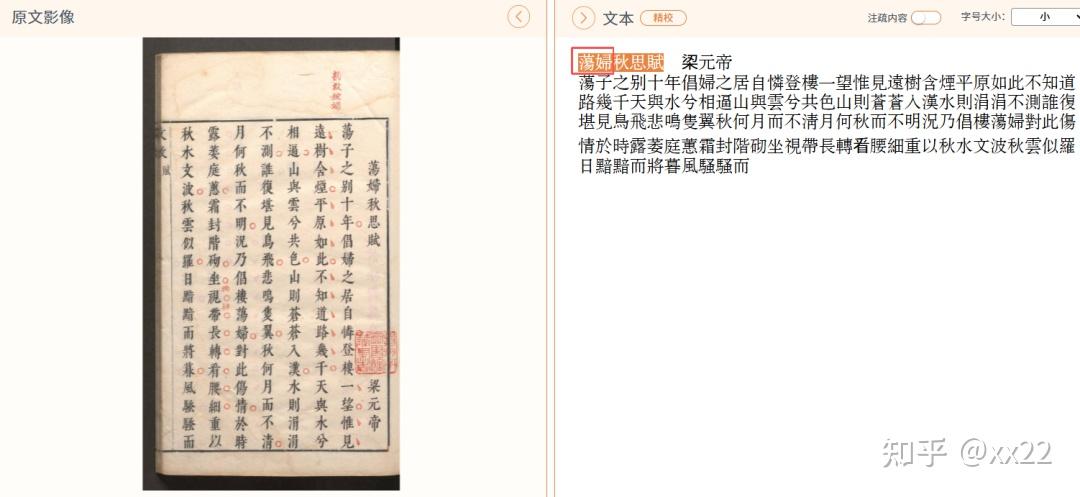 原文影像
蕩婦秋思賦 梁元帝
蕩子之別十年倡婦之居自憐登樓一望惟見
遠樹含煙平原如此不知道路幾千天與水兮
相逼山與雲兮共色山則蒼蒼入漢水則涓涓
不測誰復堪見鳥飛悲鳴隻翼秋何月而不清
月何秋而不明況乃倡樓蕩婦對此傷情於時
露萎庭蕙霜封階砌坐視帶長轉看腰細重以
秋水文波秋雲似羅日黯黯而將暮風騷騷而
文本 精校 注疏内容 字号大小： 小
蕩婦秋思賦 梁元帝
蕩子之別十年倡婦之居自憐登樓一望惟見遠樹含煙平原如此不知道
路幾千天與水兮相逼山與雲兮共色山則蒼蒼入漢水則涓涓不測誰復
堪見鳥飛悲鳴隻翼秋何月而不清月何秋而不明況乃倡樓蕩婦對此傷
情於時露萎庭蕙霜封階砌坐視帶長轉看腰細重以秋水文波秋雲似羅
日黯黯而將暮風騷騷而
知乎 @xx22